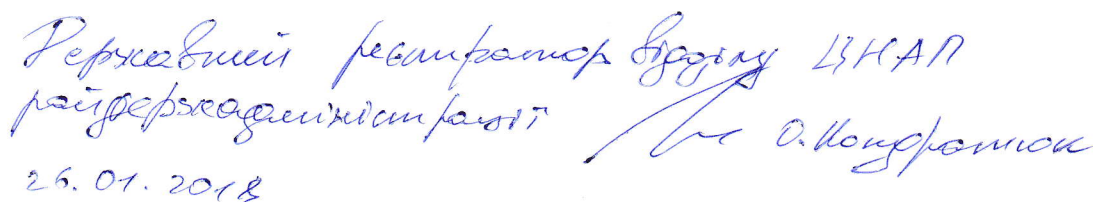 Державний реєстратор відділу ЦНАП
райдержадміністрації О. Кондратюк
26.01.2018